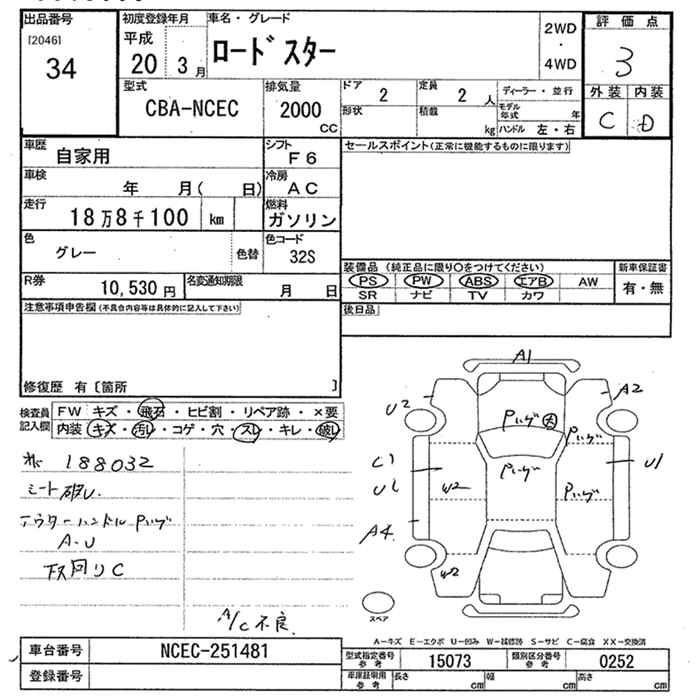 出品番号
[2046]
34
初度登録年月
平成
20 3月
車名・グレード
ロードスター
2WD
・
4WD
評価点
3
外装 内装
C D
型式
CBA-NCEC
排気量
2000
CC
ドア
2
定員
2 人
形状
積載
kg
ディーラー・並行
モデル年式 年
ハンドル 左・右
車歴
自家用
シフト
F6
車検
年 月( 日)
冷房
AC
走行
18万8千100 km
燃料
ガソリン
色
グレー
色替
色コード
32S
R券
10,530円
名変通知期限
月 日
セールスポイント(正常に機能するものに限ります)
装備品(純正品に限り○をつけてください)
PS PW ABS エアB AW
SR ナビ TV カワ
新車保証書
有・無
後日品
注意事項申告欄(不具合内容等は具体的に記入して下さい)
修復歴 有〔箇所 〕
検査員
記入欄
FW キズ・飛石・ヒビ割・リペア跡・×要
内装 キズ・汚レ・コゲ・穴・スレ・キレ・破レ
188032
シート破レ
アウターハンドルPハゲ
A-U
下回りC
A/C不良
A1
A2
U2
Pハゲ大
Pハゲ
Pハゲ
C1
U1
W2
Pハゲ
U1
A4
W2
スペア
A-キズ E-エクボ U-凹み W-補修跡 S-サビ C-腐食 XX-交換済
車台番号
NCEC-251481
登録番号
型式指定番号
参考
15073
類別区分番号
参考
0252
車庫証明用
参考
長さ cm
幅 cm
高さ cm